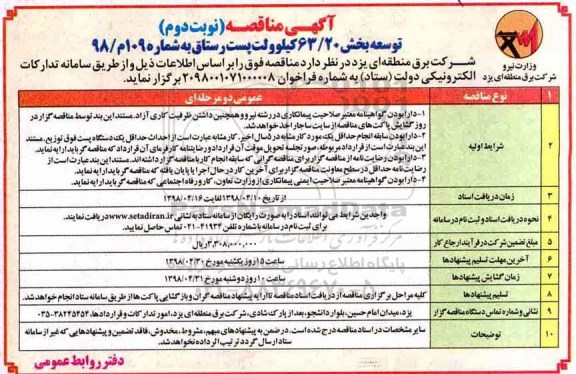 آگهی مناقصه (نوبت دوم)
توسعه بخش ۶۳/۲۰ کیلوولت پست رستاق به شماره ۱۰۹/م/۹۸
وزارت نیرو
شرکت برق منطقه‌ای یزد
شرکت برق منطقه‌ای یزد در نظر دارد مناقصه فوق را بر اساس اطلاعات ذیل و از طریق سامانه تدارکات
الکترونیکی دولت (ستاد) به شماره فراخوان ۲۰۹۸۰۰۱۰۷۱۰۰۰۰۰۸ برگزار نماید.
۱ نوع مناقصه عمومی دو مرحله‌ای
۲ شرایط اولیه
۱-دارا بودن گواهینامه معتبر صلاحیت پیمانکاری در رشته نیرو و همچنین داشتن ظرفیت کاری آزاد. مستند این بند توسط مناقصه گزار در
روز گشایش پاکت های مناقصه از سایت ساجار اخذ خواهد شد.
۲-دارا بودن سابقه انجام حداقل یک مورد کار مشابه در ۵ سال اخیر. کار مشابه عبارت است از احداث حداقل یک دستگاه پست فوق توزیع. مستند
این بند عبارت است از قرارداد مربوطه، صورتجلسه تحویل موقت آن قرارداد و رضایتنامه کارفرمای آن قرارداد که مناقصه گر باید ارایه نماید.
۳-دارا بودن رضایت نامه از مناقصه گزار برای مناقصه گرانی که سابقه انجام کار با مناقصه گزار داشته‌اند. مستند این بند عبارت است از
رضایت نامه حداقل در سطح معاونت مناقصه گزار برای آخرین کار در حال اجرا یا پایان یافته که مناقصه گر باید ارایه نماید.
۴-دارا بودن گواهینامه معتبر صلاحیت ایمنی پیمانکاری از وزارت تعاون، کار و رفاه اجتماعی که مناقصه گر باید ارایه نماید.
۳ زمان دریافت اسناد از تاریخ ۱۳۹۸/۰۴/۱۰ لغایت ۱۳۹۸/۰۴/۱۶
۴ نحوه دریافت اسناد و ثبت نام در سامانه
واجدین شرایط می توانند اسناد را به صورت رایگان از سامانه ستاد به نشانی www.setadiran.ir دریافت نمایند.
برای ثبت نام در سامانه با شماره تلفن ۴۱۹۳۴-۰۲۱ تماس حاصل نمایید.
۵ مبلغ تضمین شرکت در فرآیند ارجاع کار ۲,۳۰۸,۰۰۰,۰۰۰ ریال
۶ آخرین مهلت تسلیم پیشنهادها ساعت ۱۵ روز یکشنبه مورخ ۱۳۹۸/۰۴/۳۰
۷ زمان گشایش پیشنهادها ساعت ۱۰ روز دوشنبه مورخ ۱۳۹۸/۰۴/۳۱
۸ تسلیم پیشنهادها کلیه مراحل برگزاری مناقصه از دریافت اسناد مناقصه تا ارایه پیشنهاد مناقصه گران و بازگشایی پاکت ها از طریق سامانه ستاد انجام خواهد شد.
۹ نشانی و شماره تماس دستگاه مناقصه گزار یزد، میدان امام حسین، بلوار دانشجو، بعد از پارک شادی، شرکت برق منطقه ای یزد، امور تدارکات و قراردادها، ۳۸۲۴۵۴۵۴-۰۳۵
۱۰ توضیحات
سایر مشخصات در اسناد مناقصه درج شده است. در ضمن به پیشنهادهای مبهم، مشروط، مخدوش، فاقد تضمین و پیشنهادهایی که غیر از سامانه
ستاد ارسال گردد ترتیب اثر داده نخواهد شد.
دفتر روابط عمومی